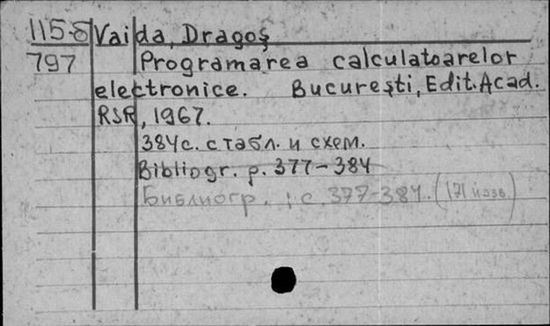 115-5 Vaida, Dragoş
797 Programarea calculatoarelor
electronice. Bucureşti, Edit. Acad.
RSR, 1967.
384 с. с табл. и схем.
Bibliogr. p. 377-384
Библиогр.: с. 377-384. (171 назв)